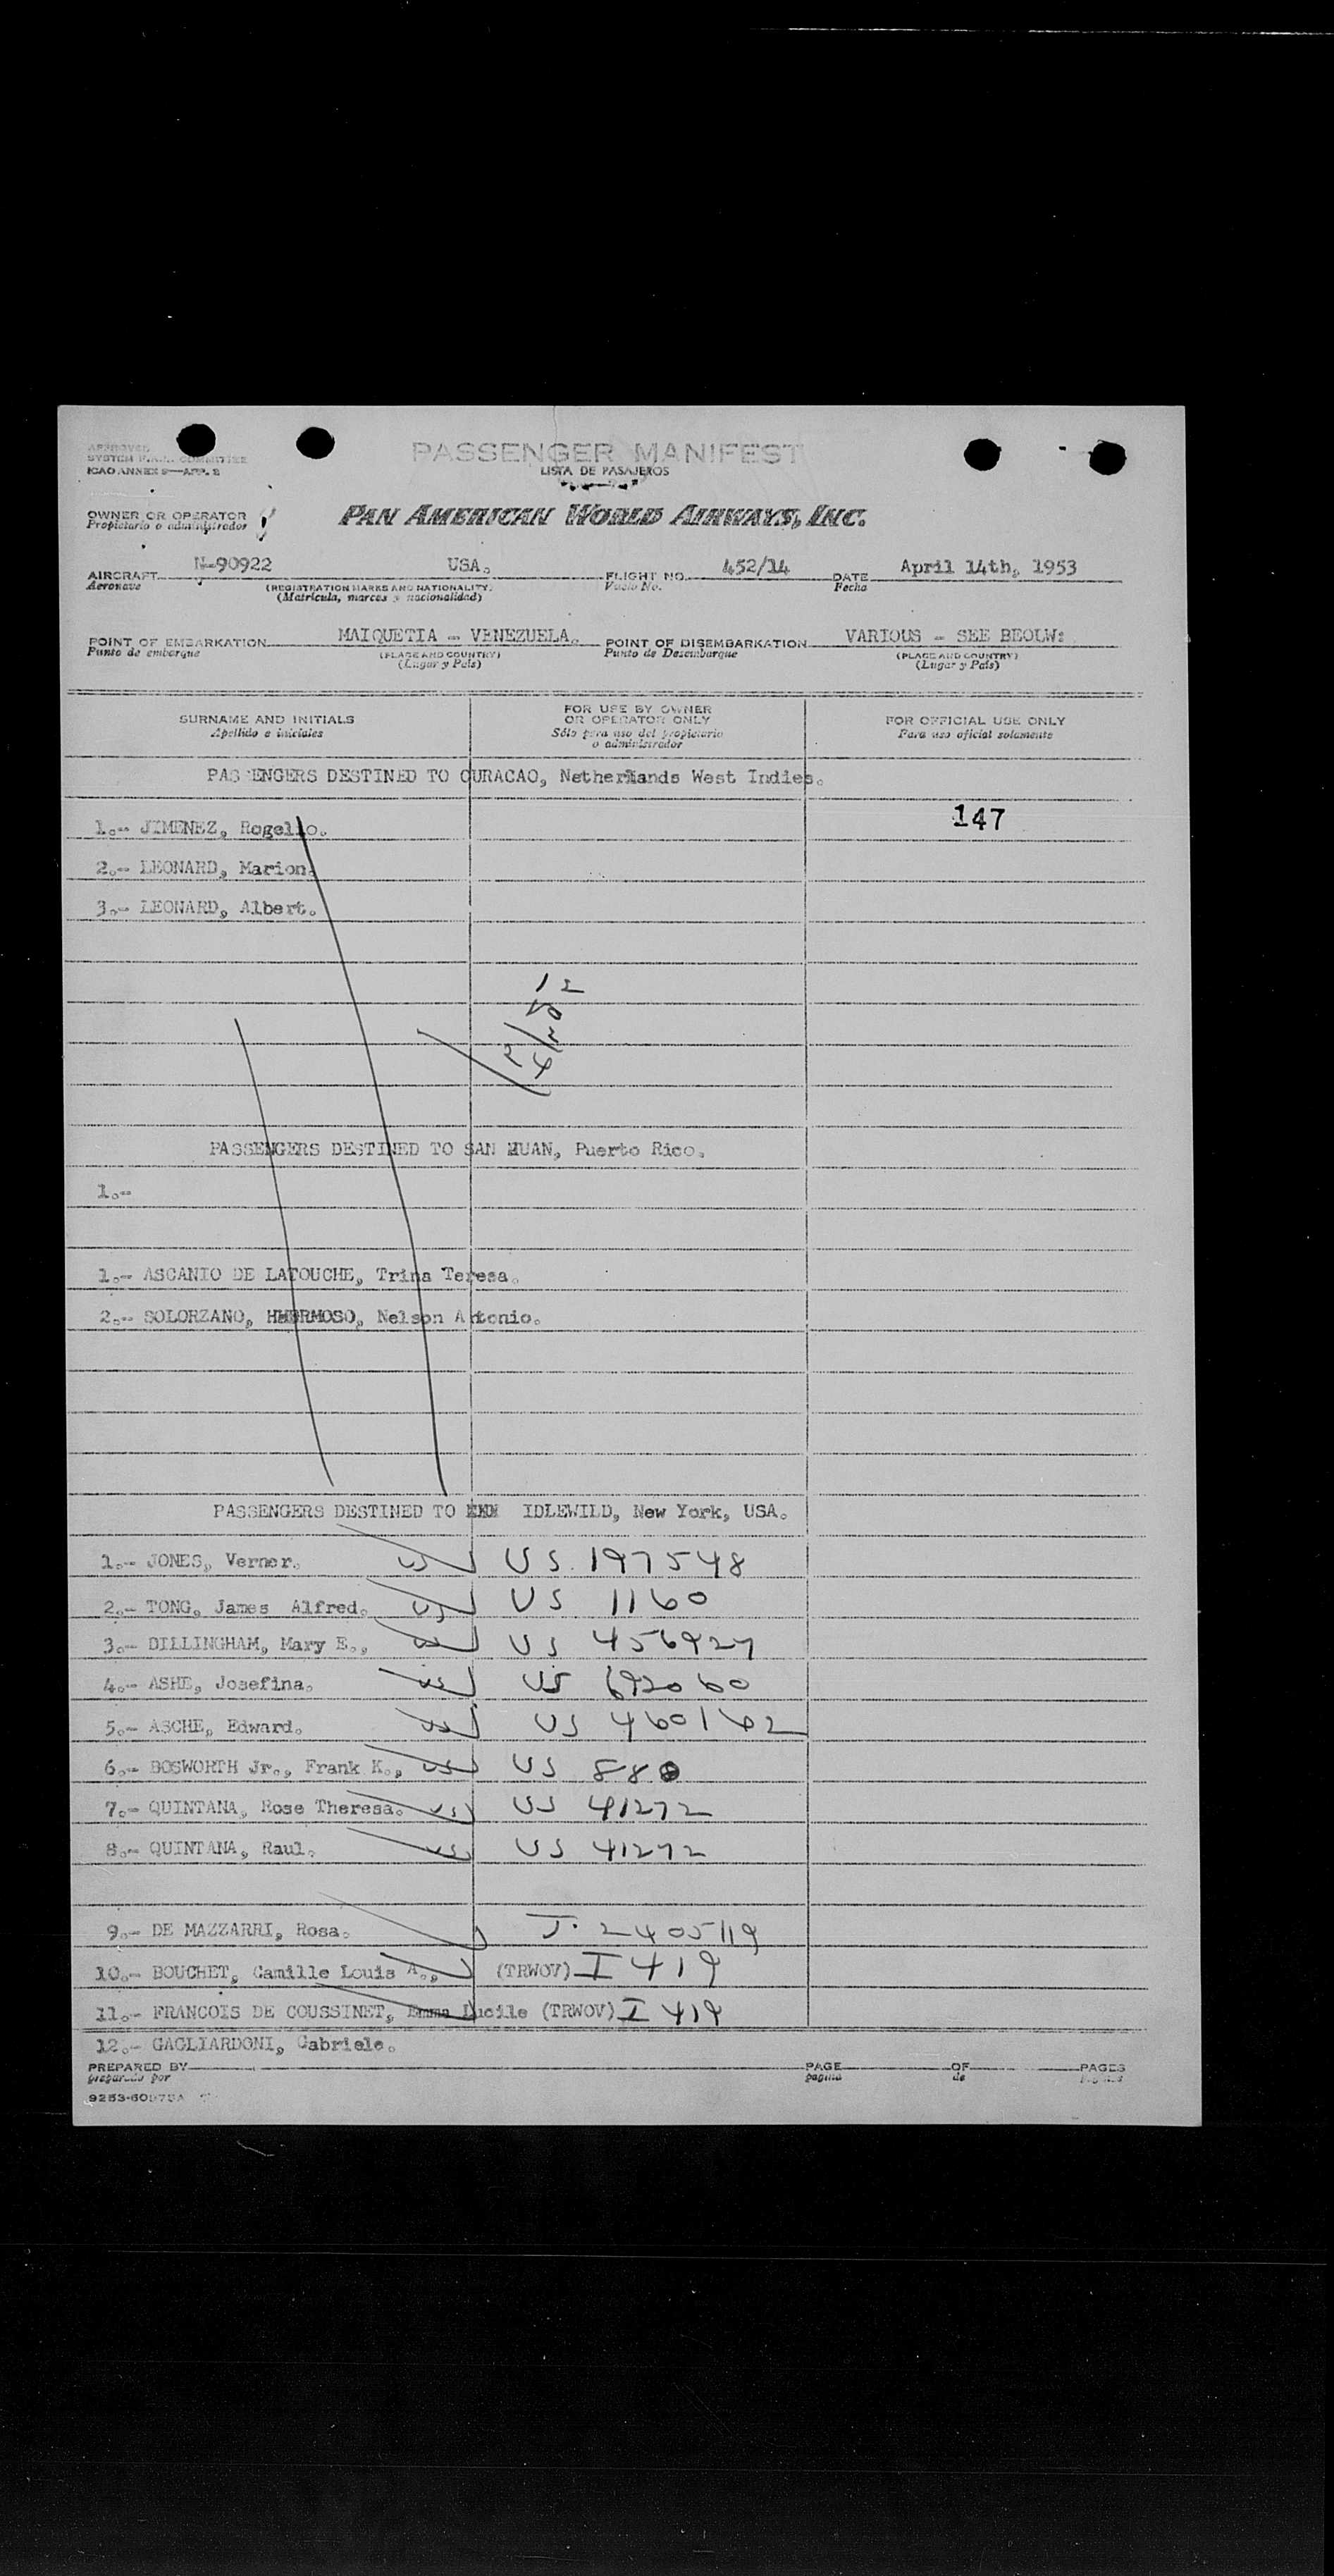 APPROVED
SYSTEM COMMITTEE
ICAO ANNEX 9—APP. 2
PASSENGER MANIFEST
LISTA DE PASAJEROS
OWNER OR OPERATOR
Propietario o administrador
PAN AMERICAN WORLD AIRWAYS, INC.
AIRCRAFT N-90922 USA. FLIGHT NO. 452/14 DATE April 14th, 1953
Aeronave (REGISTRATION MARKS AND NATIONALITY) Vuelo No. Fecha
(Matrícula, marcas y nacionalidad)
POINT OF EMBARKATION MAIQUETIA - VENEZUELA. POINT OF DISEMBARKATION VARIOUS - SEE BEOLW:
Punto de embarque (PLACE AND COUNTRY) Punto de Desembarque (PLACE AND COUNTRY)
(Lugar y País) (Lugar y País)
SURNAME AND INITIALS
Apellido e iniciales
FOR USE BY OWNER
OR OPERATOR ONLY
Sólo para uso del propietario
o administrador
FOR OFFICIAL USE ONLY
Para uso oficial solamente
PASSENGERS DESTINED TO CURACAO, Netherlands West Indies.
147
1.- JIMENEZ, Rogelio.
2.- LEONARD, Marion.
3.- LEONARD, Albert.
PASSENGERS DESTINED TO SAN HUAN, Puerto Rico.
1.-
1.- ASCANIO DE LATOUCHE, Trina Teresa.
2.- SOLORZANO, HERMOSO, Nelson Antonio.
PASSENGERS DESTINED TO IDLEWILD, New York, USA.
1.- JONES, Verner. US US 197548
2.- TONG, James Alfred. US US 1160
3.- DILLINGHAM, Mary E., US US 456927
4.- ASHE, Josefina. US US 692060
5.- ASCHE, Edward. US US 460162
6.- BOSWORTH Jr., Frank K., US US 880
7.- QUINTANA, Rose Theresa. US US 41272
8.- QUINTANA, Raul. US US 41272
9.- DE MAZZARRI, Rosa. I. 2405119
10.- BOUCHET, Camille Louis A., (TRWOV) I 419
11.- FRANCOIS DE COUSSINET, Emma Lucile (TRWOV) I 419
12.- GAGLIARDONI, Gabriele.
PREPARED BY PAGE OF PAGES
preparado por pagina de